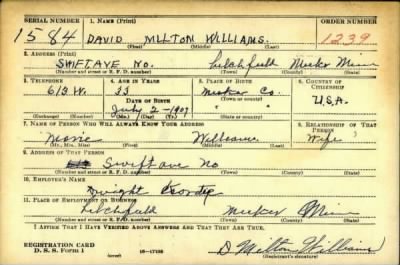 SERIAL NUMBER 1. NAME (Print) ORDER NUMBER
1584 DAVID MILTON WILLIAMS. 1239
(First) (Middle) (Last)
2. ADDRESS (Print)
SWIFT AVE NO. Litchfield Meeker Minn
(Number and street or R. F. D. number) (Town) (County) (State)
3. TELEPHONE 4. AGE IN YEARS 5. PLACE OF BIRTH 6. COUNTRY OF CITIZENSHIP
613W. 33 Meeker Co. U.S.A.
DATE OF BIRTH (Town or county)
July 2-1907
(Exchange) (Number) (Mo.) (Day) (Yr.) (State or country)
7. NAME OF PERSON WHO WILL ALWAYS KNOW YOUR ADDRESS 8. RELATIONSHIP OF THAT PERSON
Williams Wife
(Mr., Mrs., Miss) (First) (Middle) (Last)
9. ADDRESS OF THAT PERSON
Swift ave No
(Number and street or R. F. D. number) (Town) (County) (State)
10. EMPLOYER'S NAME
Dwight
11. PLACE OF EMPLOYMENT OR BUSINESS
Litchfield Meeker Minn
(Number and street or R. F. D. number) (Town) (County) (State)
I AFFIRM THAT I HAVE VERIFIED ABOVE ANSWERS AND THAT THEY ARE TRUE.
REGISTRATION CARD
D. S. S. Form 1 (over) D Milton Williams
(Registrant's signature)